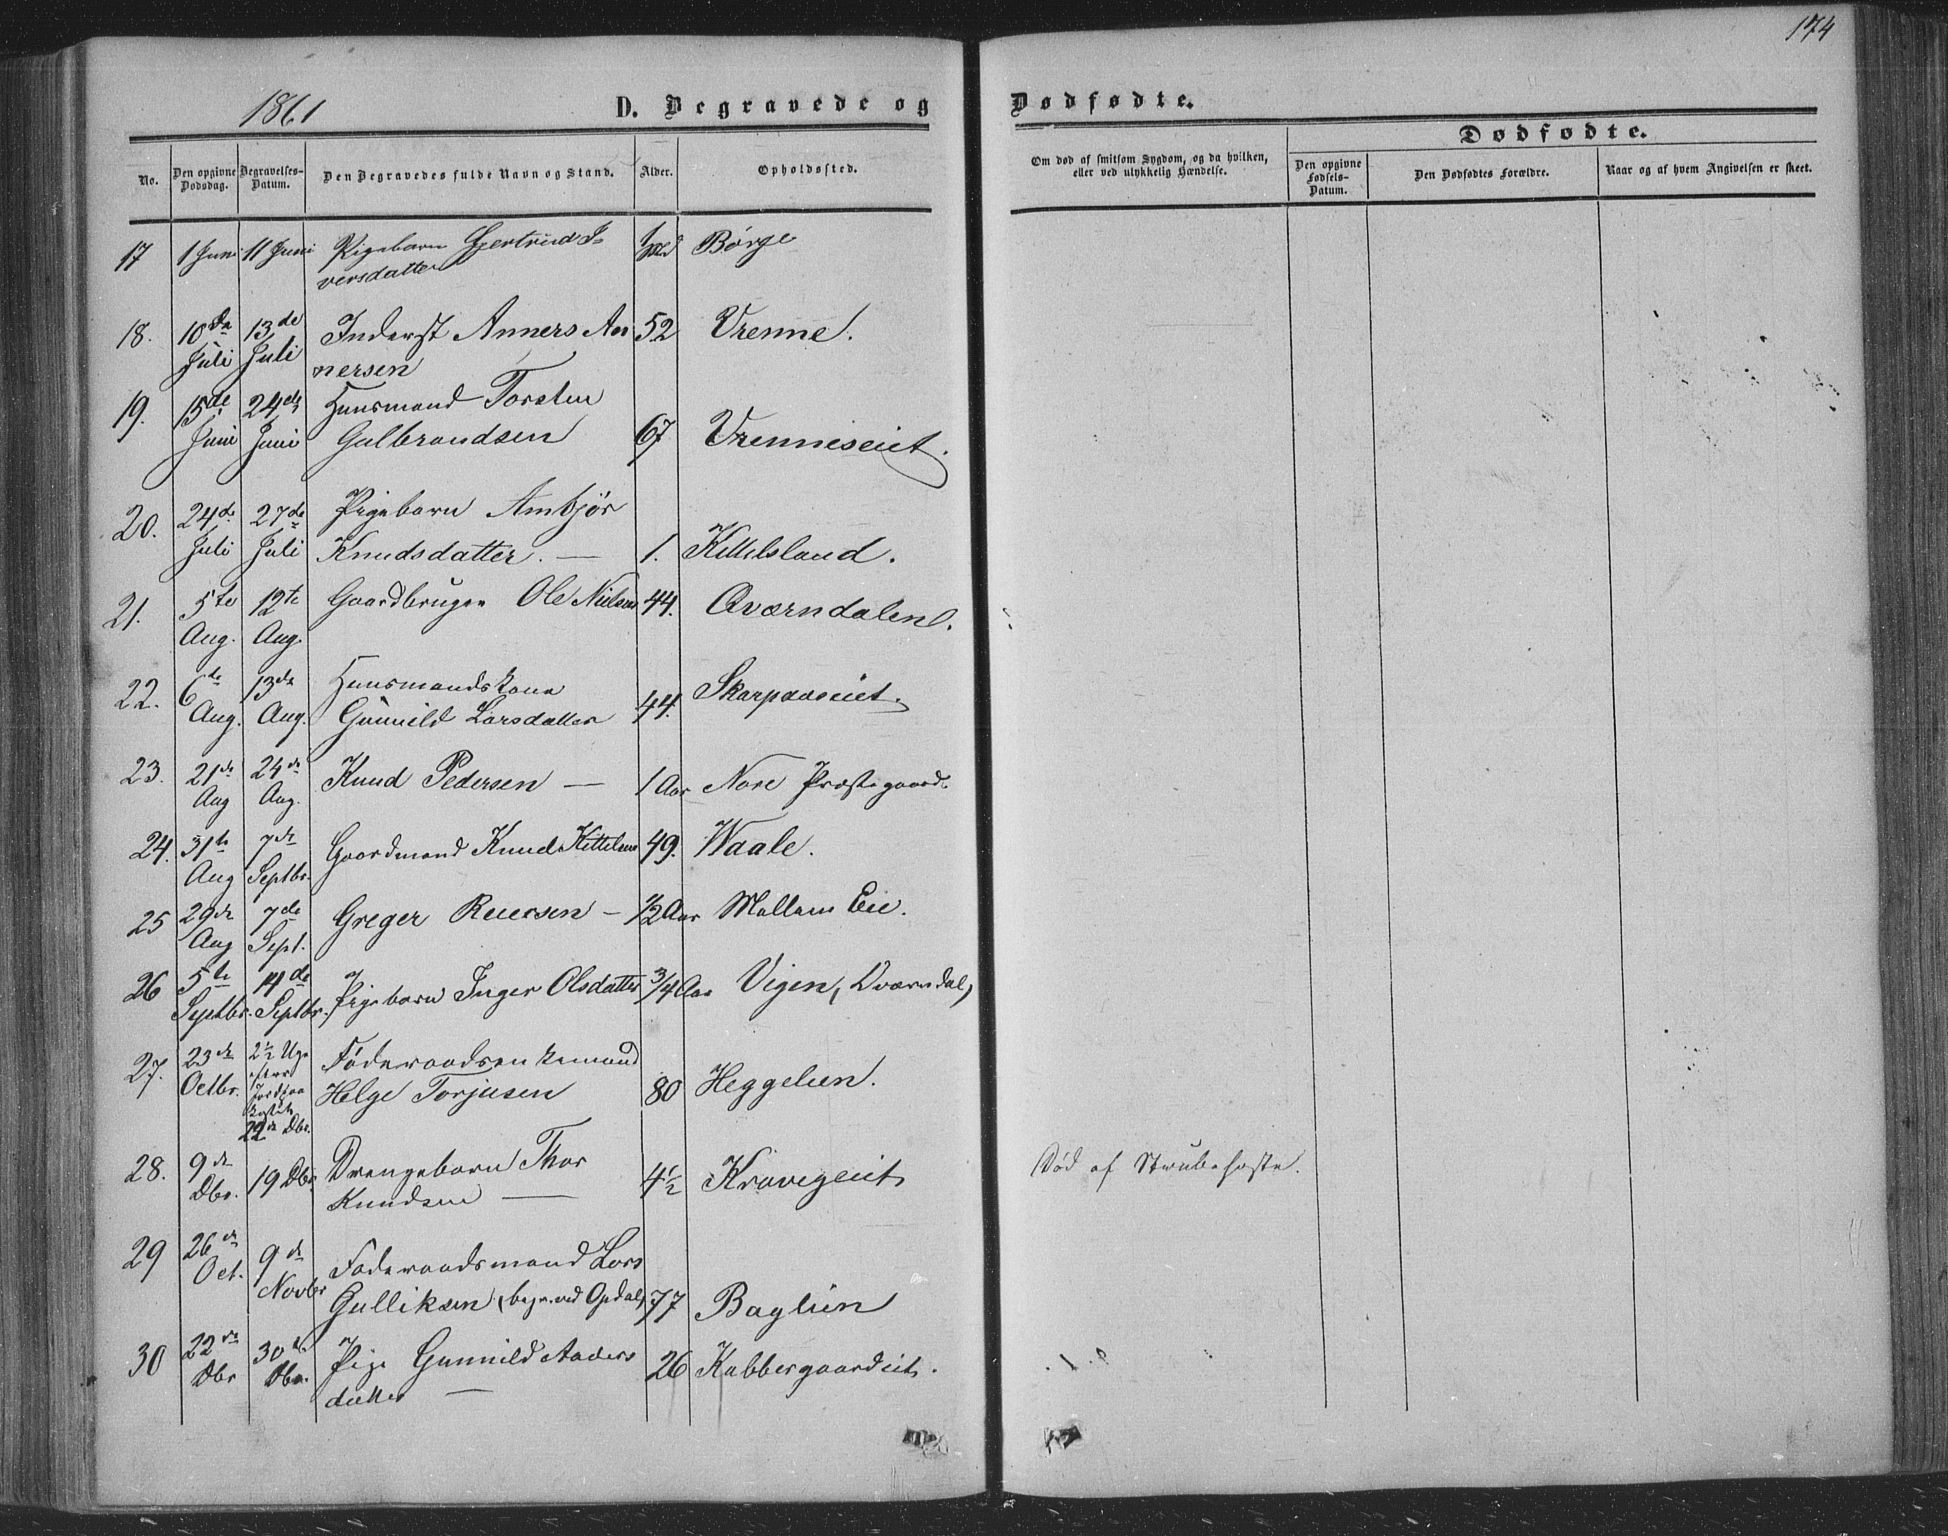 174
1861
D. Begravede og
Dødfødte.
No.
Den opgivne Dødsdag.
Begravelses-Datum.
Den Begravedes fulde Navn og Stand.
Alder.
Opholdssted.
Om død af smitsom Sygdom, og da hvilken, eller ved ulykkelig Hændelse.
Dødfødte.
Den opgivne Fødsels-Datum.
Den Dødfødtes Forældre.
Naar og af hvem Angivelsen er skeet.
17 1 Juni 11 Juni Pigebarn Gjertrud I- Børge
versdatter
18. 10de 13de Inderst Anners An 52 Vrenne.
Juli Juli nersen
19. 15de 24de Huusmand Torsten
Juni Juni Gulbrandsen 67 Vrenneseiet.
20. 24de 27de Pigebarn Ambjør
Juli Juli Knudsdatter. — 1. Kittilsland.
21. 5te 12te Gaardbruger Ole Nielsen 44. Qværndalen.
Aug. Aug.
22. 6te 13de Huusmandskone
Aug. Aug. Gunnild Larsdatter 44. Skarpaaseiet.
23. 21de 24de Knud Pedersen — 1 Aar Nore Præstegaard.
Aug Aug.
24. 31te 7de Gaardmand Knud Kittelsen 49. Waale.
Aug Septbr.
25 29de 7de Greger Reiersen — 1/2 Aar Mellem Eie.
Aug Sept.
26 5te 14de Pigebarn Inger Olsdatter 3/4 Aar Vigen, Qværndal,
Septbr. Septbr.
27. 23de 2 1/2 Uge Føderaadsenkemand
Octbr. efter Helge Torjusen 80 Heggelien.
22de Dbr.
28. 9de 19 Dbr. Drengebarn Thor 4 1/2 Kravigeiet Død af Strubehoste.
Dbr. Knudsen —
29 26de 9de Føderaadsmand Lars
Oct. Novbr Gulliksen (begr. ved Opdal) 77 Baglien
30 22de 30te Pige Gunnild Anders 26 Kabbergaardeiet.
Dbr Dbr. datter —